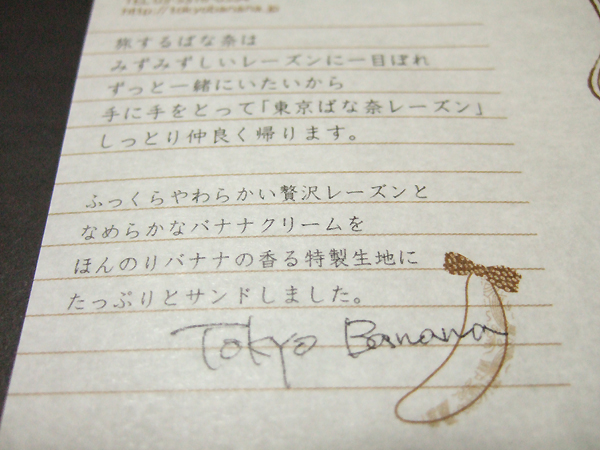 http://tokyobanana.jp
旅するばな奈は
みずみずしいレーズンに一目ぼれ
ずっと一緒にいたいから
手に手をとって「東京ばな奈レーズン」
しっとり仲良く帰ります。
ふっくらやわらかい贅沢レーズンと
なめらかなバナナクリームを
ほんのりバナナの香る特製生地に
たっぷりとサンドしました。
Tokyo Banana